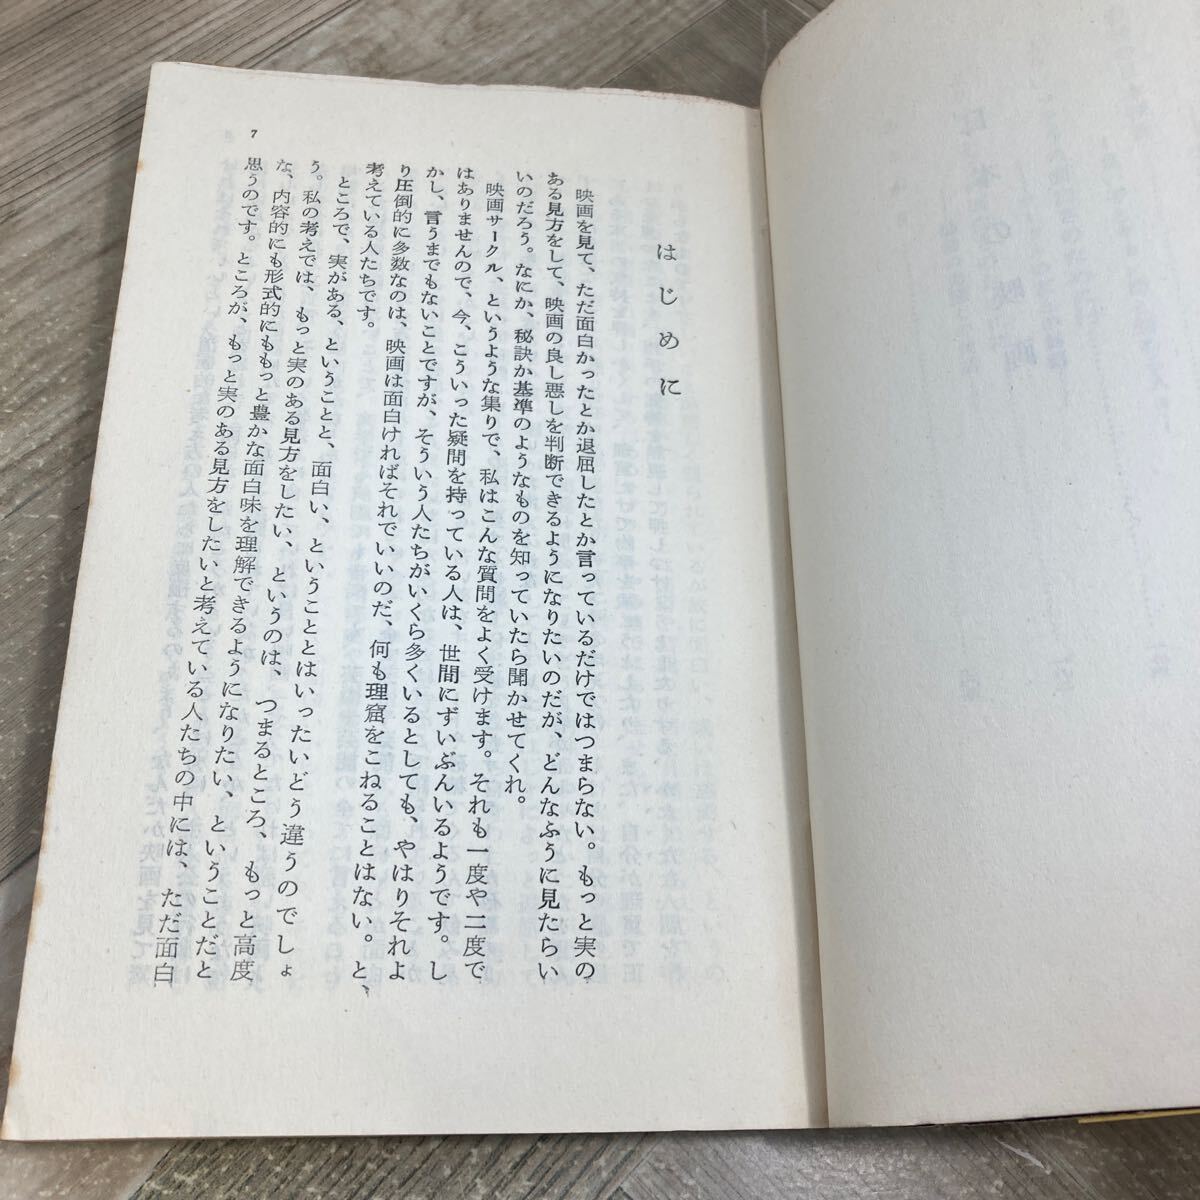 はじめに
映画を見て、ただ面白かったとか退屈したとか言っているだけではつまらない。もっと実の
ある見方をして、映画の良し悪しを判断できるようになりたいのだが、どんなふうに見たらい
いのだろう。なにか、秘訣か基準のようなものを知っていたら聞かせてくれ。
映画サークル、というような集りで、私はこんな質問をよく受けます。それも一度や二度で
はありませんので、今、こういった疑問を持っている人は、世間にずいぶんいるようです。し
かし、言うまでもないことですが、そういう人たちがいくら多くいるとしても、やはりそれよ
り圧倒的に多数なのは、映画は面白ければそれでいいのだ、何も理窟をこねることはない。と、
考えている人たちです。
ところで、実がある、ということと、面白い、ということとはいったいどう違うのでしょ
う。私の考えでは、もっと実のある見方をしたい、というのは、つまるところ、もっと高度
な、内容的にも形式的にももっと豊かな面白味を理解できるようになりたい、ということだと
思うのです。ところが、もっと実のある見方をしたいと考えている人たちの中には、ただ面白
7